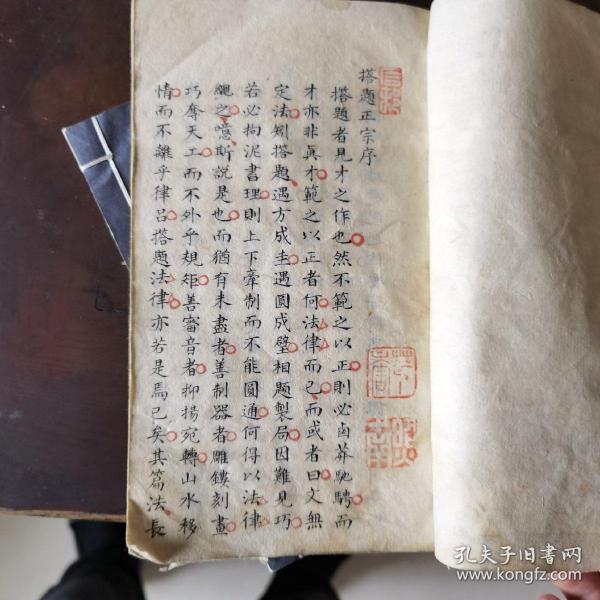 搭題正宗序
搭題者見才之作也然不範之以正則必鹵莽馳騁而
才亦非真才範之以正者何法律而已而或者曰文無
定法矧搭題遇方成圭遇圓成璧相題製局因難見巧
若必拘泥書理則上下牽制而不能圓通何得以法律
繩之噫斯說是也而猶有未盡者善制器者雕鏤刻畫
巧奪天工而不外乎規矩善審音者抑揚宛轉山水移
情而不離乎律呂搭題法律亦若是焉已矣其篇法長
孔夫子旧书网
www.kongfz.com